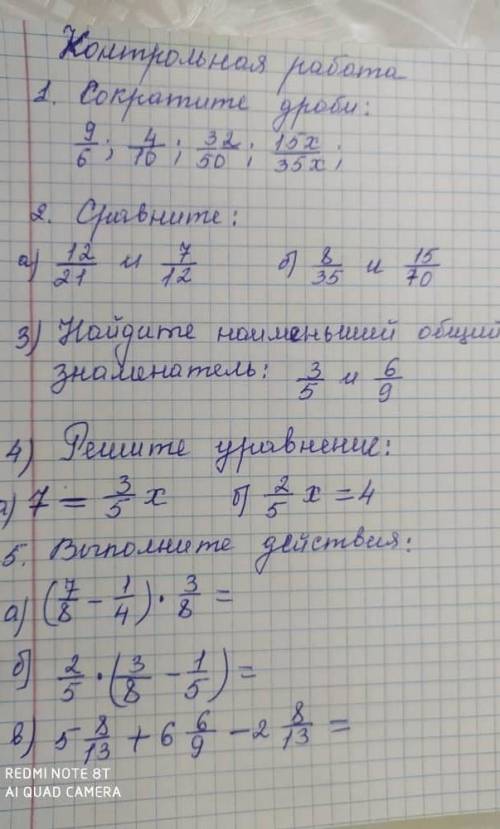 Контрольная работа
1. Сократите дроби:
9/6; 4/10; 32/50; 15x/35x;
2. Сравните:
а) 12/21 и 7/12 б) 8/35 и 15/70
3) Найдите наименьший общий
знаменатель: 3/5 и 6/9
4) Решите уравнение:
а) 7 = 3/5 x б) 2/5 x = 4
5. Выполните действия:
а) (7/8 - 1/4) · 3/8 =
б) 2/5 · (3/8 - 1/5) =
в) 5 8/13 + 6 6/9 - 2 8/13 =
REDMI NOTE 8T
AI QUAD CAMERA